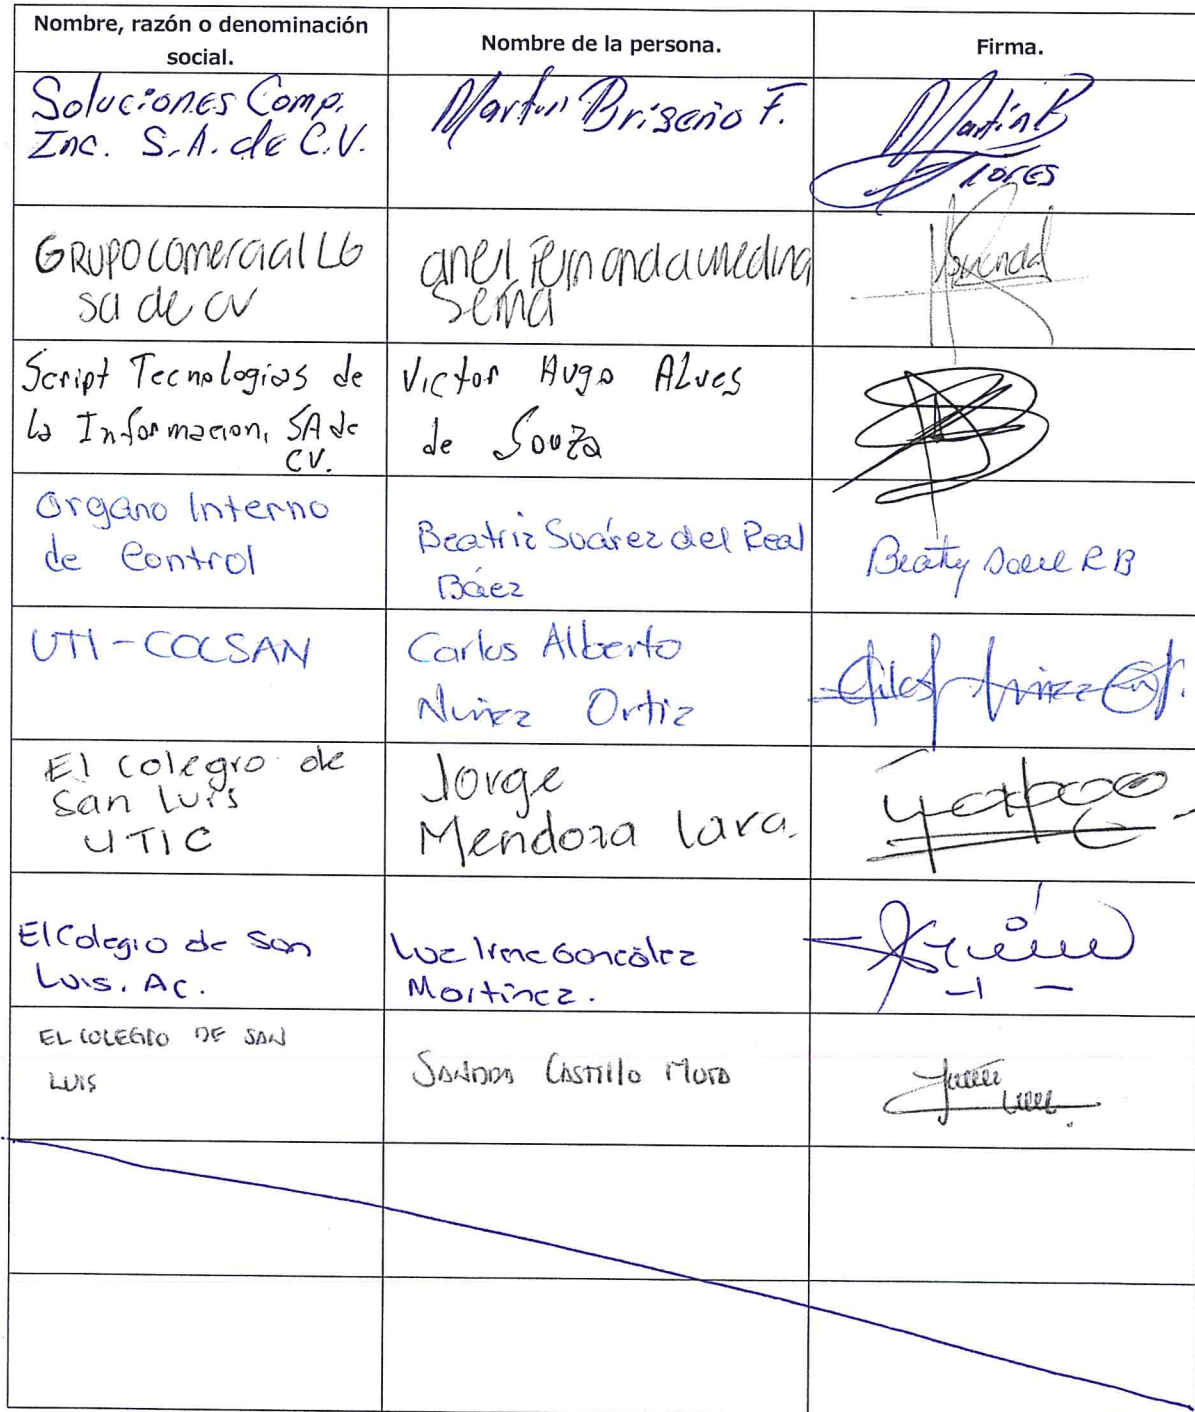 Nombre, razón o denominación
social.
Nombre de la persona.
Firma.
Soluciones Comp.
Inc. S.A. de C.V.
Martin Briseño F.
Martín B
Flores
GRUPO comercial LG
sa de cv
anel Fernanda medina
Serna
Script Tecnologias de
la Informacion, SA de
CV.
Victor Hugo Alves
de Souza
Organo Interno
de Control
Beatriz Suárez del Real
Báez
UTI - COLSAN
Carlos Alberto
Nuñez Ortiz
El Colegio de
San Luis
UTIC
Jorge
Mendoza Lara.
El Colegio de San
Luis. Ac.
Luz Irene González
Martínez.
EL COLEGIO DE SAN
LUIS
SANDRA CASTILLO MOTA